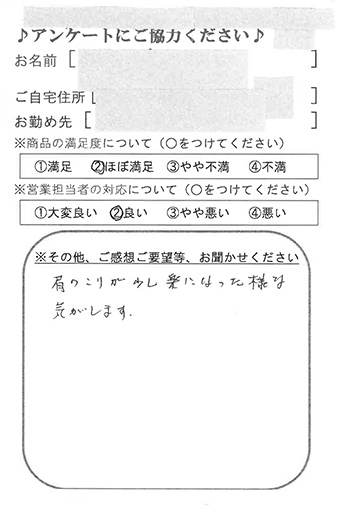 ♪アンケートにご協力ください♪
お名前 [ ]
ご自宅住所 [ ]
お勤め先 [ ]
※商品の満足度について（○をつけてください）
①満足 ②ほぼ満足 ③やや不満 ④不満
※営業担当者の対応について（○をつけてください）
①大変良い ②良い ③やや悪い ④悪い
※その他、ご感想ご要望等、お聞かせください
肩のこりが少し楽になった様な
気がします.